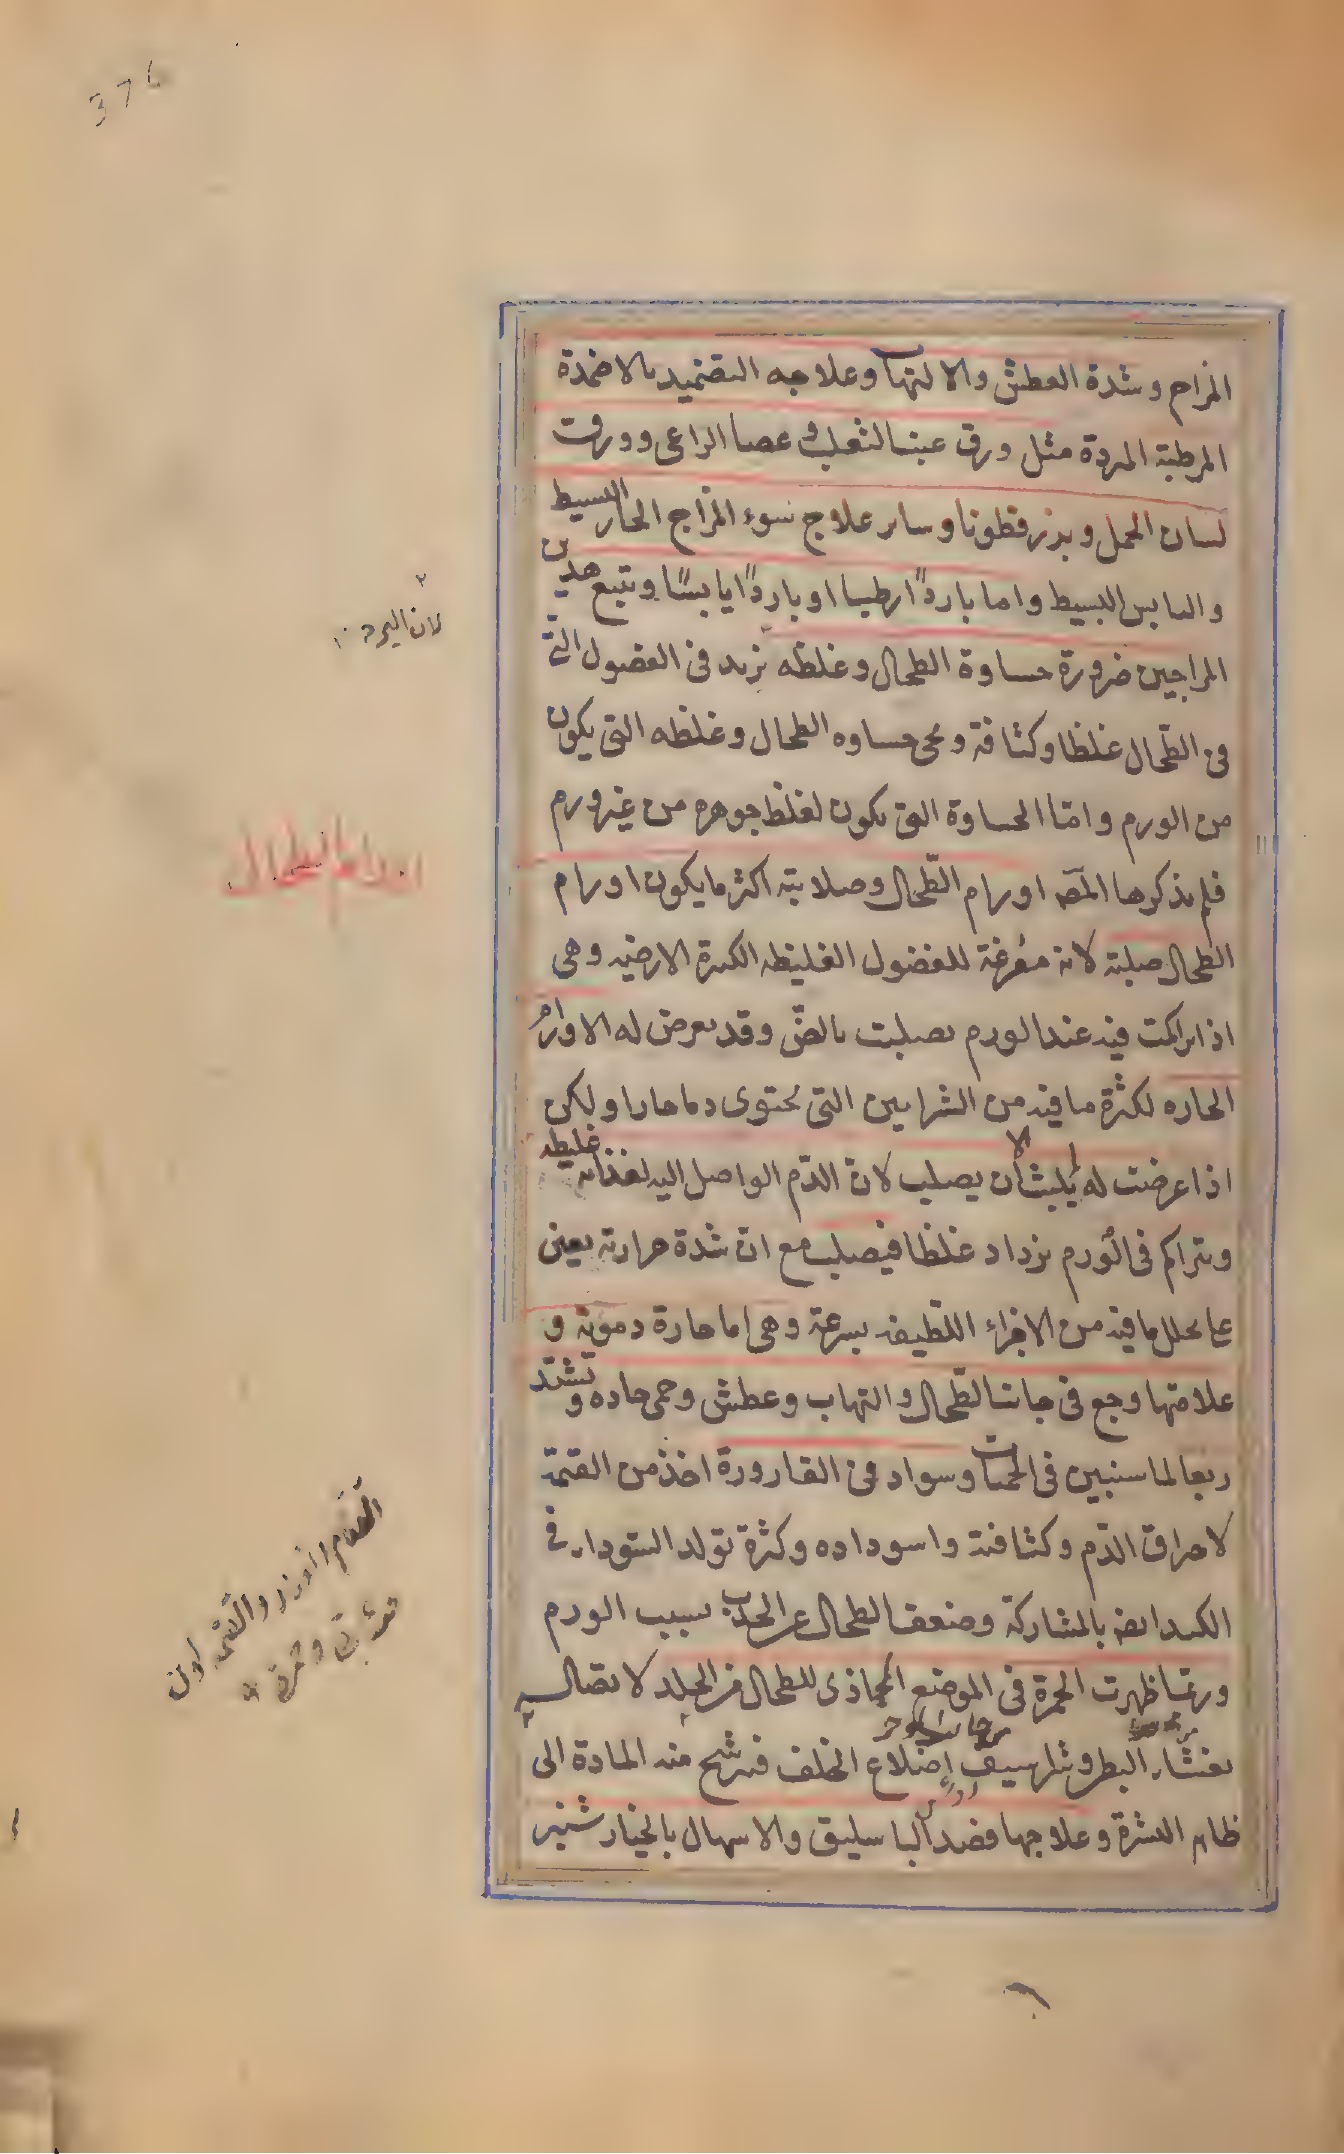 376
المزاج وشدة العطش والالتهاب وعلاجه التضميد بالاضمدة
المرطبة المبردة مثل ورق عنب الثعلب وعصا الراعى وورق
لسان الحمل وبزرقطونا وساير علاج سوء المزاج الحار البسيط
واليابس البسيط واما باردًا رطبا او باردًا يابسًا ويتبع هذين
المزاجين ضرورة جساوة الطحال وغلظه يزيد فى الفضول التى
فى الطّحال غلظا وكثافة و جساوه الطحال وغلظه التى يكون
من الورم وامّا الجساوة التى يكون لغلظ جوهره من غير ورم
فلم يذكرها المصـ اورام الطّحال وصلابته اكثر ما يكون اورام
الطحال صلبة لانه مفرغة للفضول الغليظه الكدرة الارضيه وهى
اذا تراكمت فيه عند الورم صلبت وقد يعرض له الاورامُ
الحاره لكثرة ما فيه من الشرايين التى تحتوى دما حارا ولكن
اذا عرضت له لم يلبث الا ان يصلب لانّ الدّم الواصل اليه لغذائه غليظه
ويتراكم فى الورم يزداد غلظا فيصلب مع ان شدة حرارته يعين
على تحلل ما فيه من الاجزاء اللّطيفه بسرعة وهى اما حارة دمويه و
علامتها وجع فى جانب الطّحال والتهاب وعطش وحمى حاده وتشتد
ربعا لما سنبين فى الحميات وسواد فى القارورة اخذ من القتمة
لاحراق الدّم وكثافته واسوداده وكثرة تولد السّوداء فى
الكبد ايضا بالمشاركة وضعف الطحال عن الجذب بسبب الورم
وربما ظهرت الحمرة فى الموضع المحاذى للطحال من الجلد لاتصاله
بغشاء البطن اضلاع الخلف فيرشح منه المادة الى
ظاهر البشرة وعلاجها فصد الباسليق والاسهال بالخيار شنبر
لان البرد
اورام الطحال